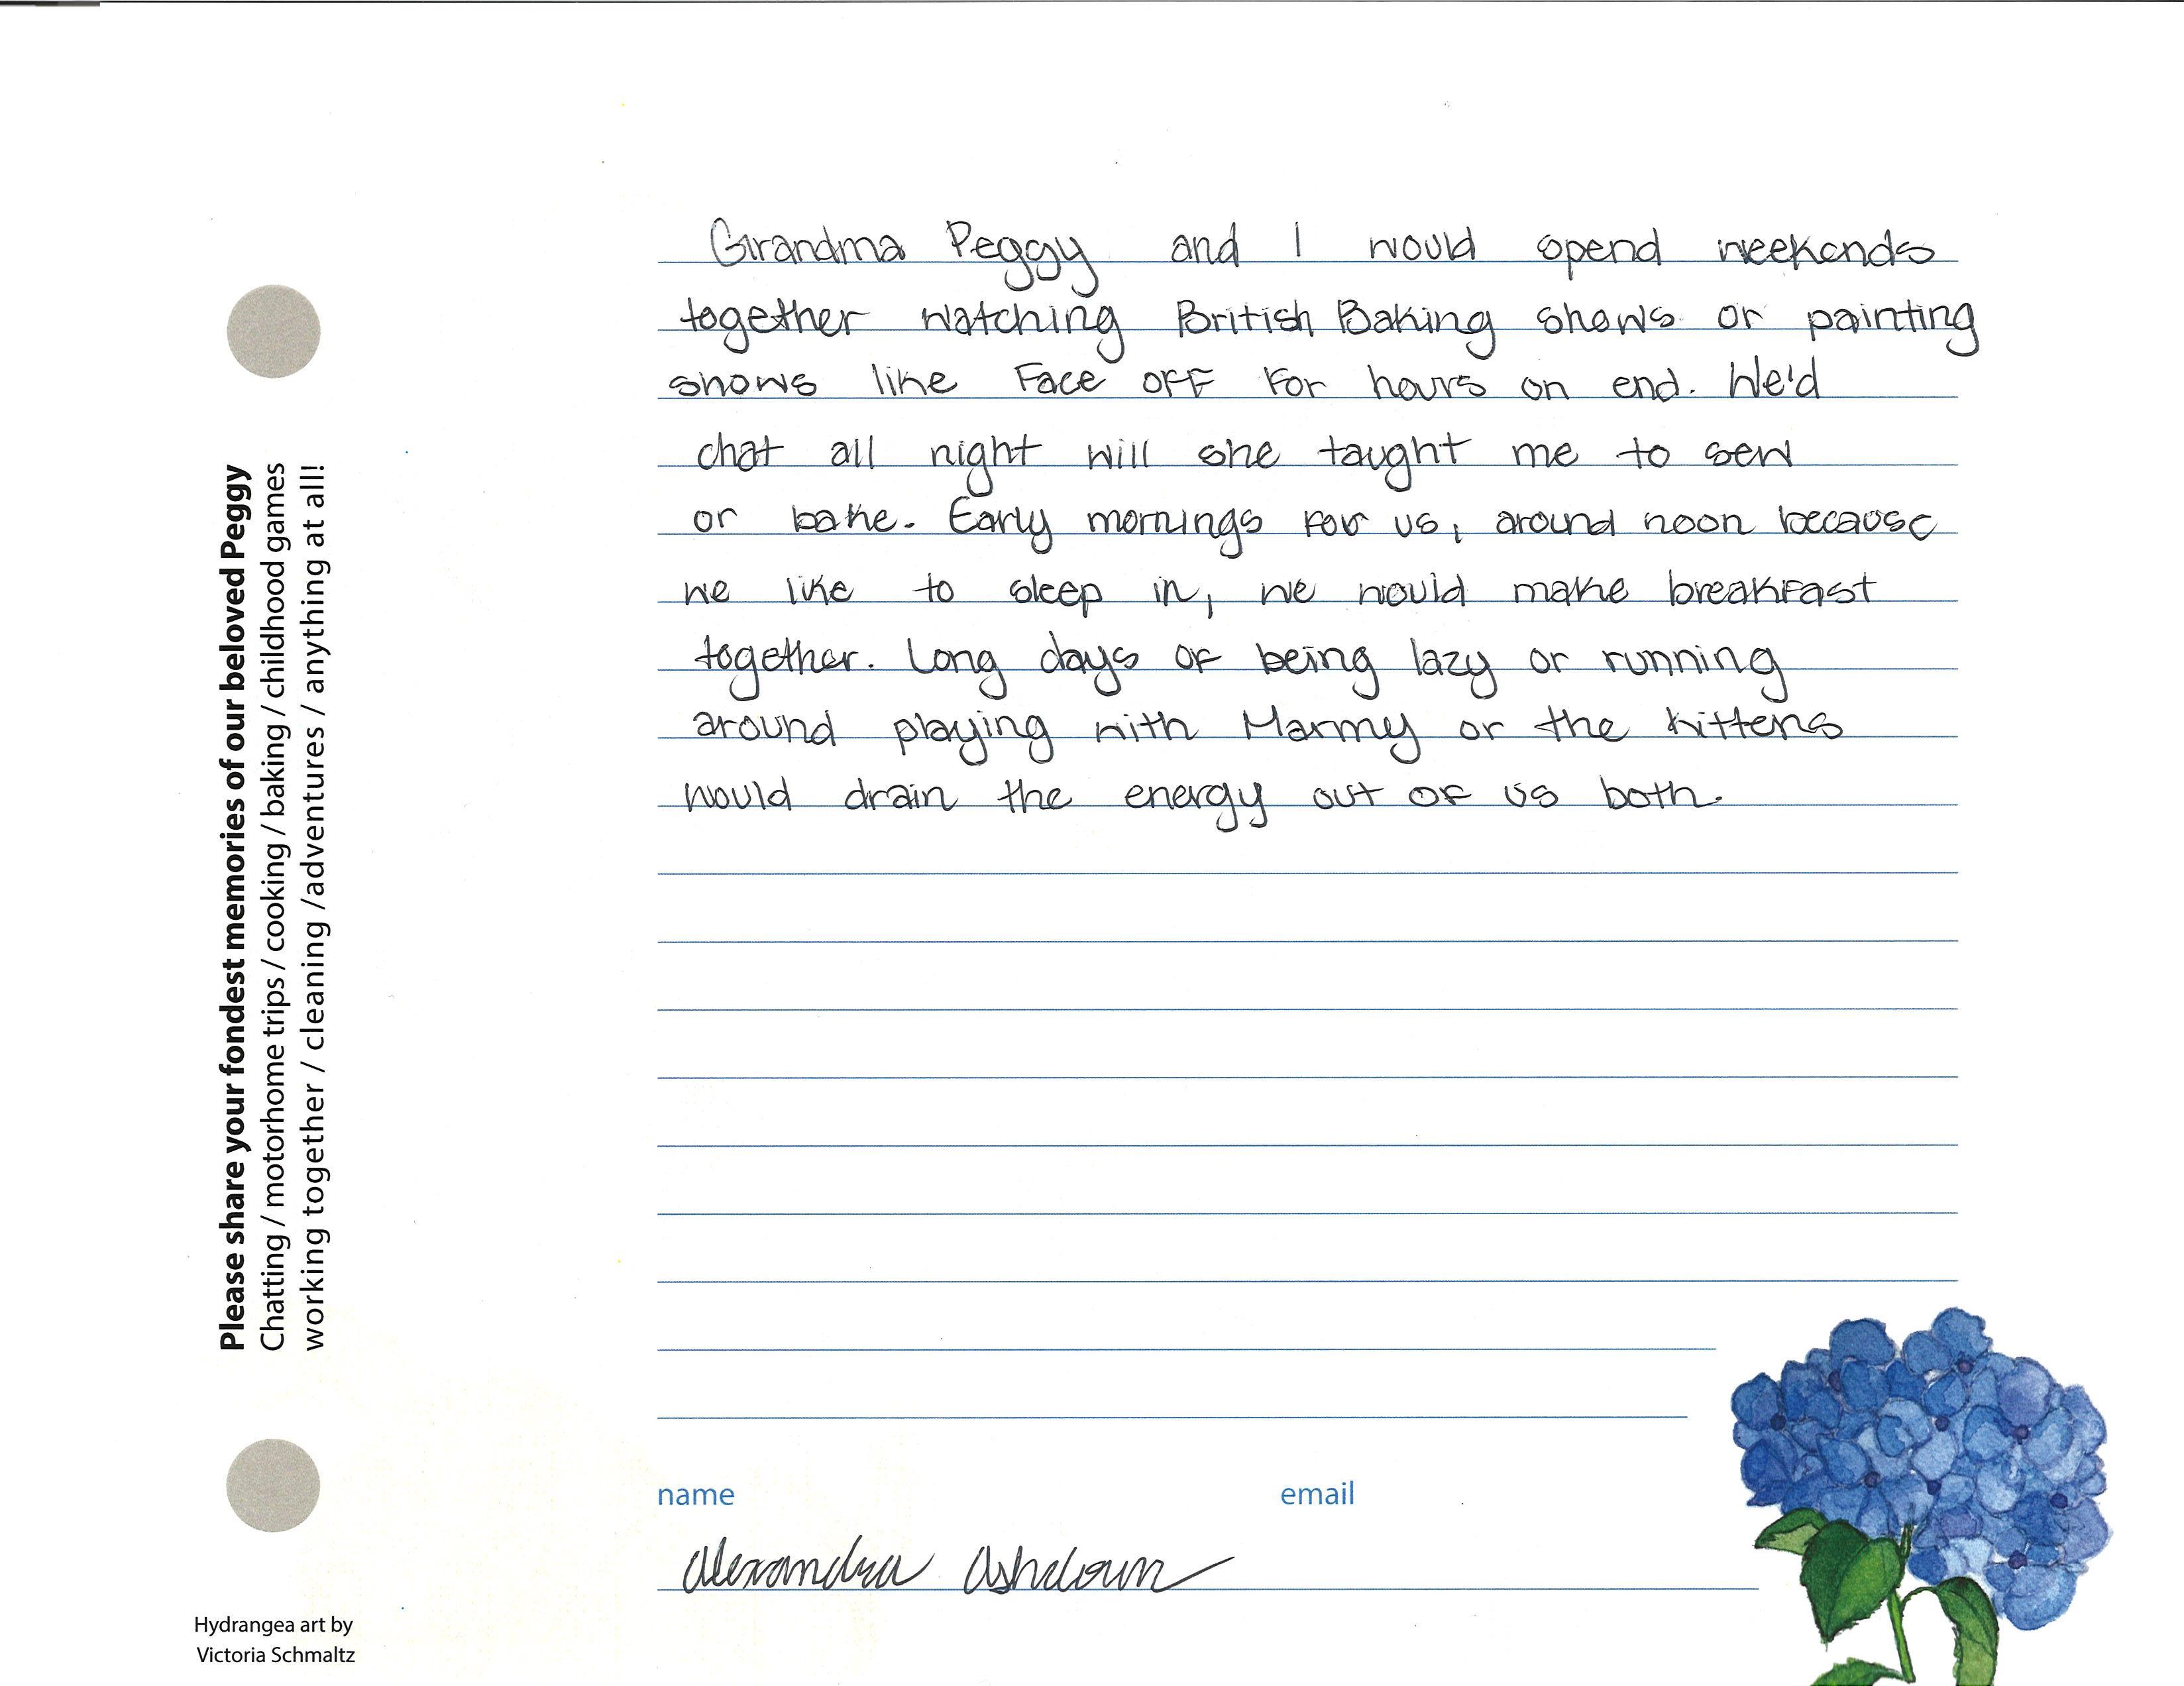 Please share your fondest memories of our beloved Peggy
Chatting / motorhome trips / cooking / baking / childhood games
working together / cleaning /adventures / anything at all!
Grandma Peggy and I would spend weekends
together watching British Baking shows or painting
shows like Face OFF For hours on end. We'd
chat all night will she taught me to sew
or bake. Early mornings For us, around noon because
we like to sleep in, we would make breakfast
together. Long days of being lazy or running
around playing with Marmy or the kittens
would drain the energy out of us both.
name email
Alexandra Ashdown
Hydrangea art by
Victoria Schmaltz